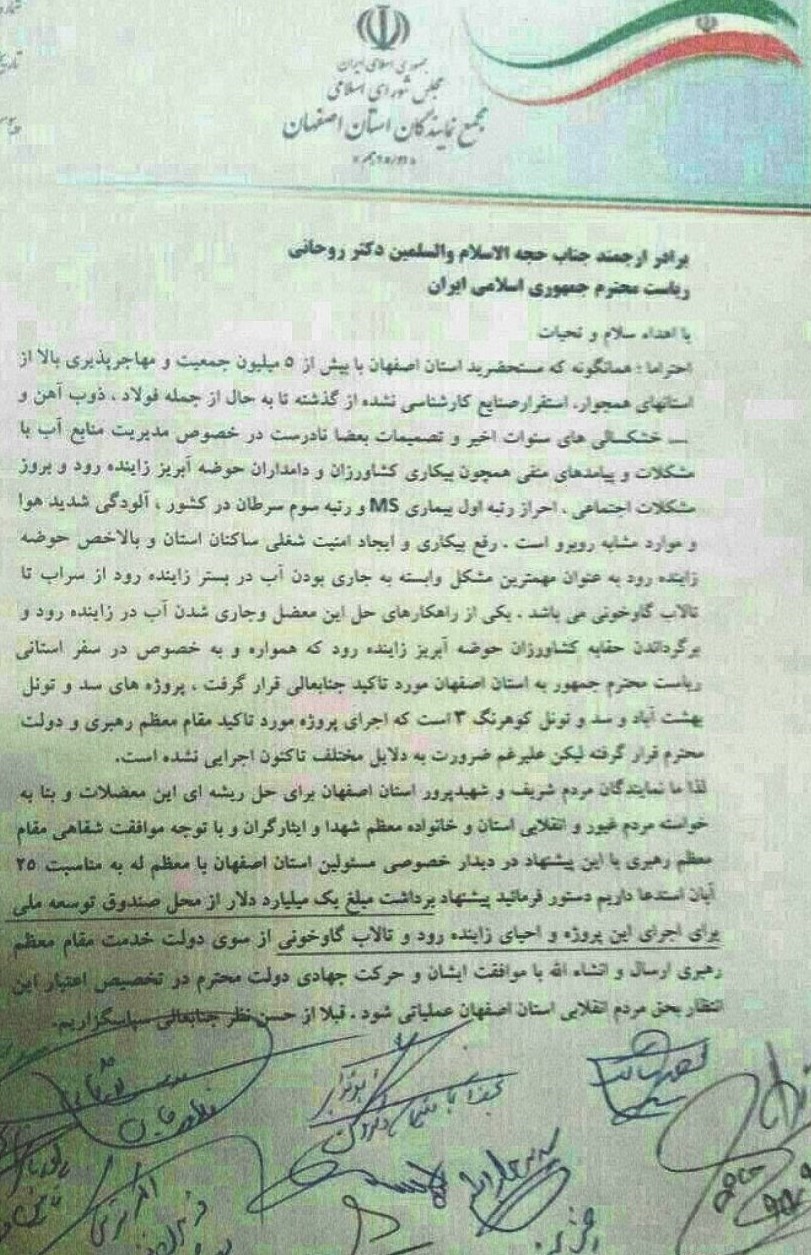 جمهوری اسلامی ایران
مجلس شورای اسلامی
مجمع نمایندگان استان اصفهان
«دوره دهم»
برادر ارجمند جناب حجه الاسلام والسلمین دکتر روحانی
ریاست محترم جمهوری اسلامی ایران
با اهداء سلام و تحیات
احتراما ؛ همانگونه که مستحضرید استان اصفهان با بیش از ۵ میلیون جمعیت و مهاجرپذیری بالا از
استانهای همجوار، استقرارصنایع کارشناسی نشده از گذشته تا به حال از جمله فولاد ، ذوب آهن و
... خشکسالی های سنوات اخیر و تصمیمات بعضا نادرست در خصوص مدیریت منابع آب با
مشکلات و پیامدهای منفی همچون بیکاری کشاورزان و دامداران حوضه آبریز زاینده رود و بروز
مشکلات اجتماعی ، احراز رتبه اول بیماری MS و رتبه سوم سرطان در کشور ، آلودگی شدید هوا
و موارد مشابه روبرو است . رفع بیکاری و ایجاد امنیت شغلی ساکنان استان و بالاخص حوضه
زاینده رود به عنوان مهمترین مشکل وابسته به جاری بودن آب در بستر زاینده رود از سراب تا
تالاب گاوخونی می باشد . یکی از راهکارهای حل این معضل وجاری شدن آب در زاینده رود و
برگرداندن حقابه کشاورزان حوضه آبریز زاینده رود که همواره و به خصوص در سفر استانی
ریاست محترم جمهور به استان اصفهان مورد تاکید جنابعالی قرار گرفت ، پروژه های سد و تونل
بهشت آباد و سد و تونل کوهرنگ ۳ است که اجرای پروژه مورد تاکید مقام معظم رهبری و دولت
محترم قرار گرفته لیکن علیرغم ضرورت به دلایل مختلف تاکنون اجرایی نشده است.
لذا ما نمایندگان مردم شریف و شهیدپرور استان اصفهان برای حل ریشه ای این معضلات و بنا به
خواسته مردم غیور و انقلابی استان و خانواده معظم شهدا و ایثارگران و با توجه موافقت شفاهی مقام
معظم رهبری با این پیشنهاد در دیدار خصوصی مسئولین استان اصفهان با معظم له به مناسبت ۲۵
آبان استدعا داریم دستور فرمائید پیشنهاد برداشت مبلغ یک میلیارد دلار از محل صندوق توسعه ملی
برای اجرای این پروژه و احیای زاینده رود و تالاب گاوخونی از سوی دولت خدمت مقام معظم
رهبری ارسال و انشاء الله با موافقت ایشان و حرکت جهادی دولت محترم در تخصیص اعتبار این
انتظار بحق مردم انقلابی استان اصفهان عملیاتی شود . قبلا از حسن نظر جنابعالی سپاسگزاریم.